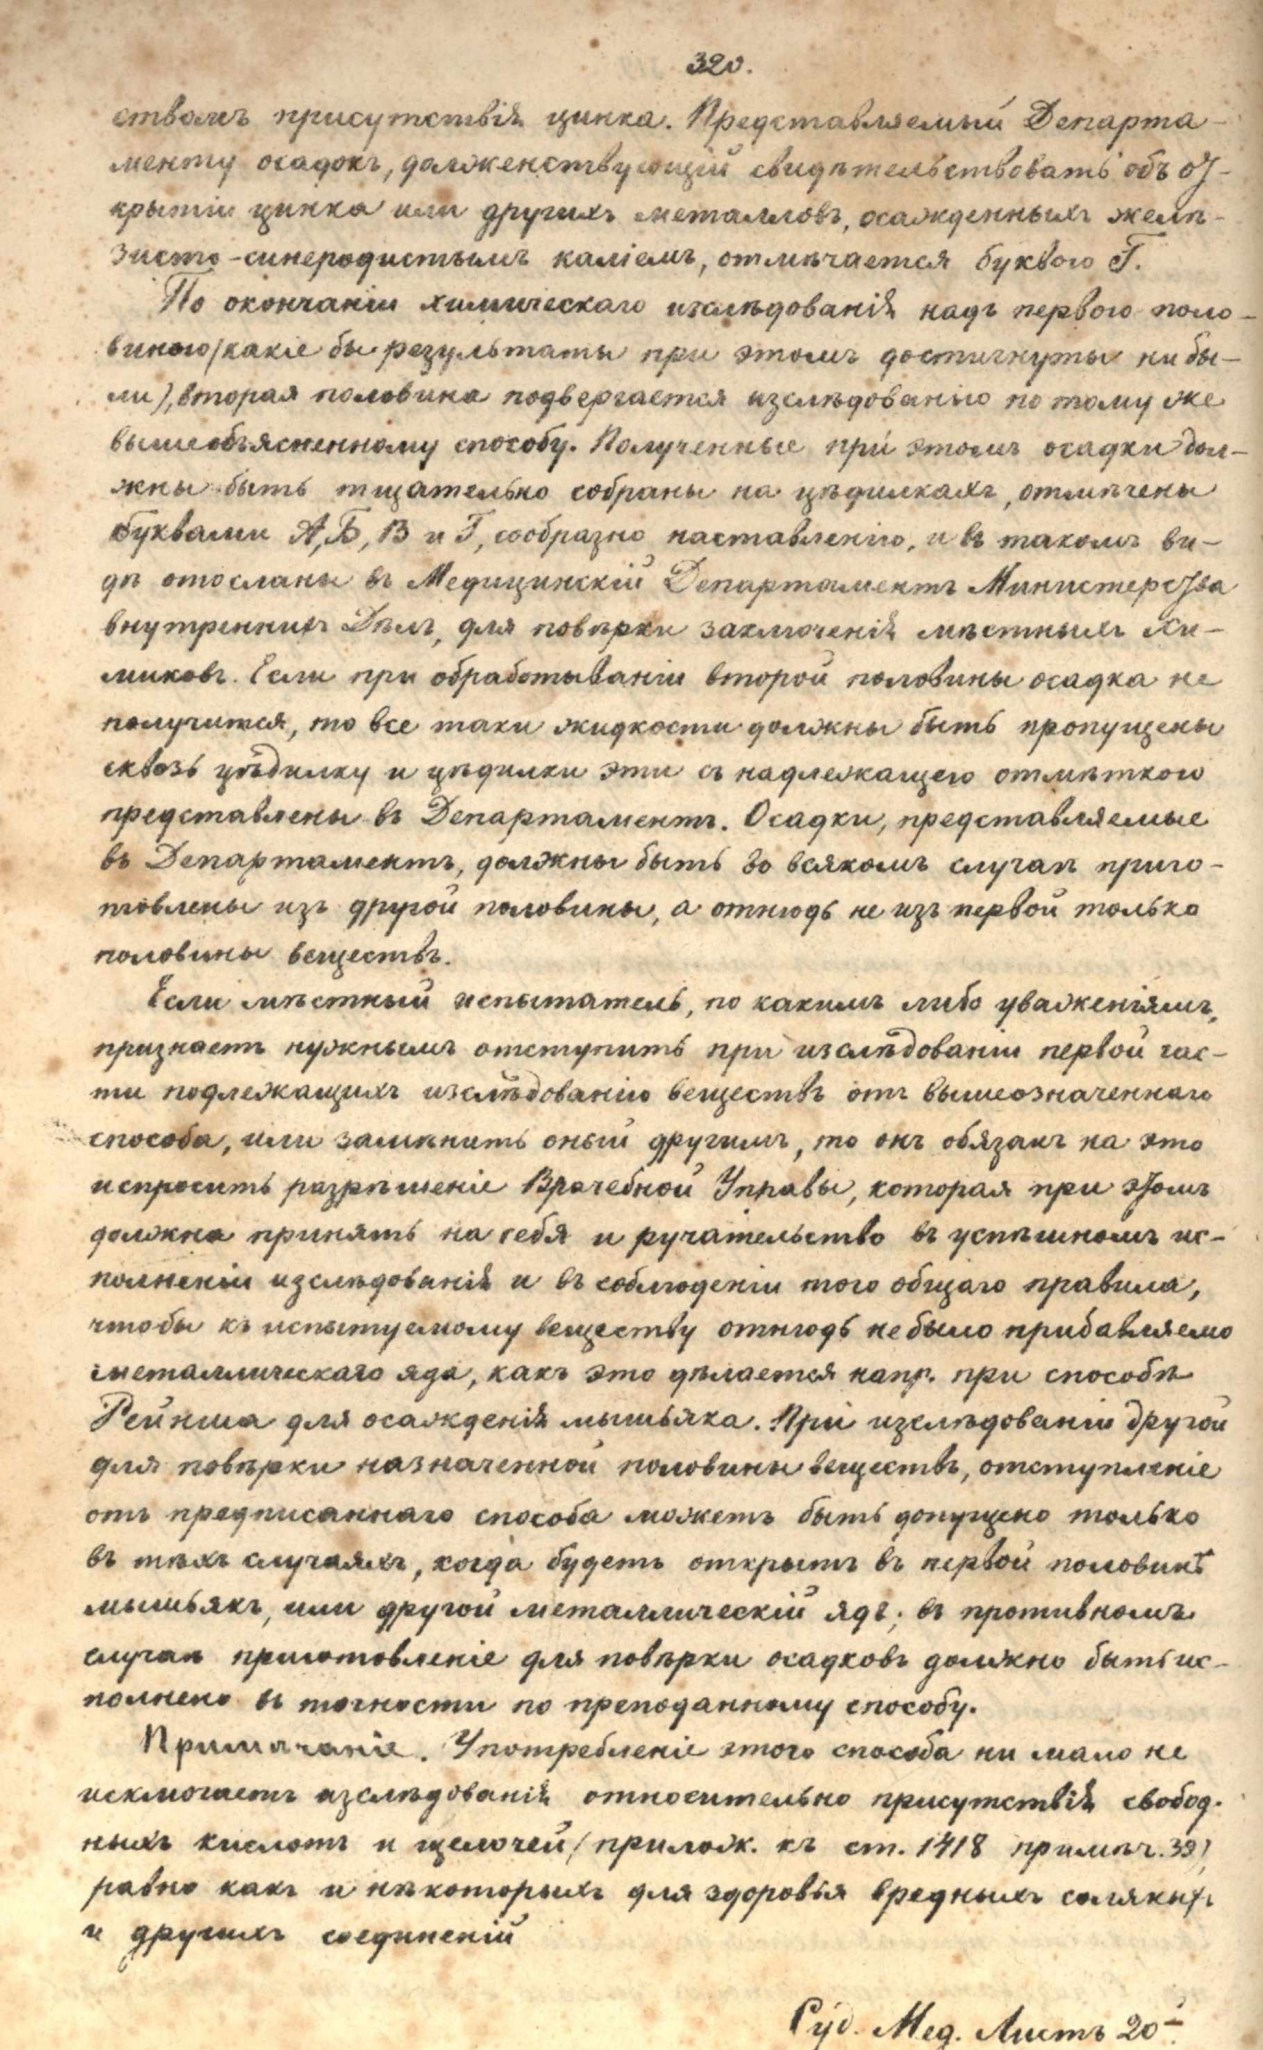 320.
ствомъ присутствія цинка. Представляемый Департа-
менту осадокъ, долженствующій свидѣтельствовать объ от-
крытіи цинка или другихъ металловъ, осажденныхъ желѣ-
зисто-синеродистымъ каліемъ, отмѣчается буквою Г.
По окончаніи химическаго изслѣдованія надъ первою поло-
виною (какіе бы результаты при этомъ достигнуты ни бы-
ли), вторая половина подвергается изслѣдованію по тому же
вышеобъясненному способу. Полученные при этомъ осадки дол-
жны быть тщательно собраны на цѣдилкахъ, отмѣчены
буквами А, Б, В и Г, сообразно наставленію, и въ такомъ ви-
дѣ отосланы въ Медицинскій Департаментъ Министерства
внутреннихъ Дѣлъ, для повѣрки заключенія мѣстныхъ хи-
миковъ. Если при обработываніи второй половины осадка не
получится, то все таки жидкости должны быть пропущены
сквозь цѣдилку и цѣдилки эти съ надлежащею отмѣткою
представлены въ Департаментъ. Осадки, представляемые
въ Департаментъ, должны быть во всякомъ случаѣ приго-
товлены изъ другой половины, а отнюдь не изъ первой только
половины веществъ.
Если мѣстный испытатель, по какимъ либо уваженіямъ,
признаетъ нужнымъ отступить при изслѣдованіи первой час-
ти подлежащихъ изслѣдованію веществъ отъ вышеозначеннаго
способа, или замѣнить оный другимъ, то онъ обязанъ на это
испросить разрѣшеніе Врачебной Управы, которая при этомъ
должна принять на себя и ручательство въ успѣшномъ ис-
полненіи изслѣдованія и въ соблюденіи того общаго правила,
чтобы къ испытуемому веществу отнюдь не было прибавляемо
металлическаго яда, какъ это дѣлается напр. при способѣ
Рейнша для осажденія мышьяка. При изслѣдованіи другой
для повѣрки назначенной половины веществъ, отступленіе
отъ предписаннаго способа можетъ быть допущено только
въ тѣхъ случаяхъ, когда будетъ открытъ въ первой половинѣ
мышьякъ, или другой металлическій ядъ; въ противномъ
случаѣ приготовленіе для повѣрки осадковъ должно быть ис-
полнено въ точности по преподанному способу.
Примѣчаніе. Употребленіе этого способа ни мало не
исключаетъ изслѣдованія относительно присутствія свобод-
ныхъ кислотъ и щелочей (прилож. къ ст. 1418 примѣч. 39)
равно какъ и нѣкоторыхъ для здоровья вредныхъ соляныхъ
и другихъ соединеній
Суд. Мед. Листъ 20-й.